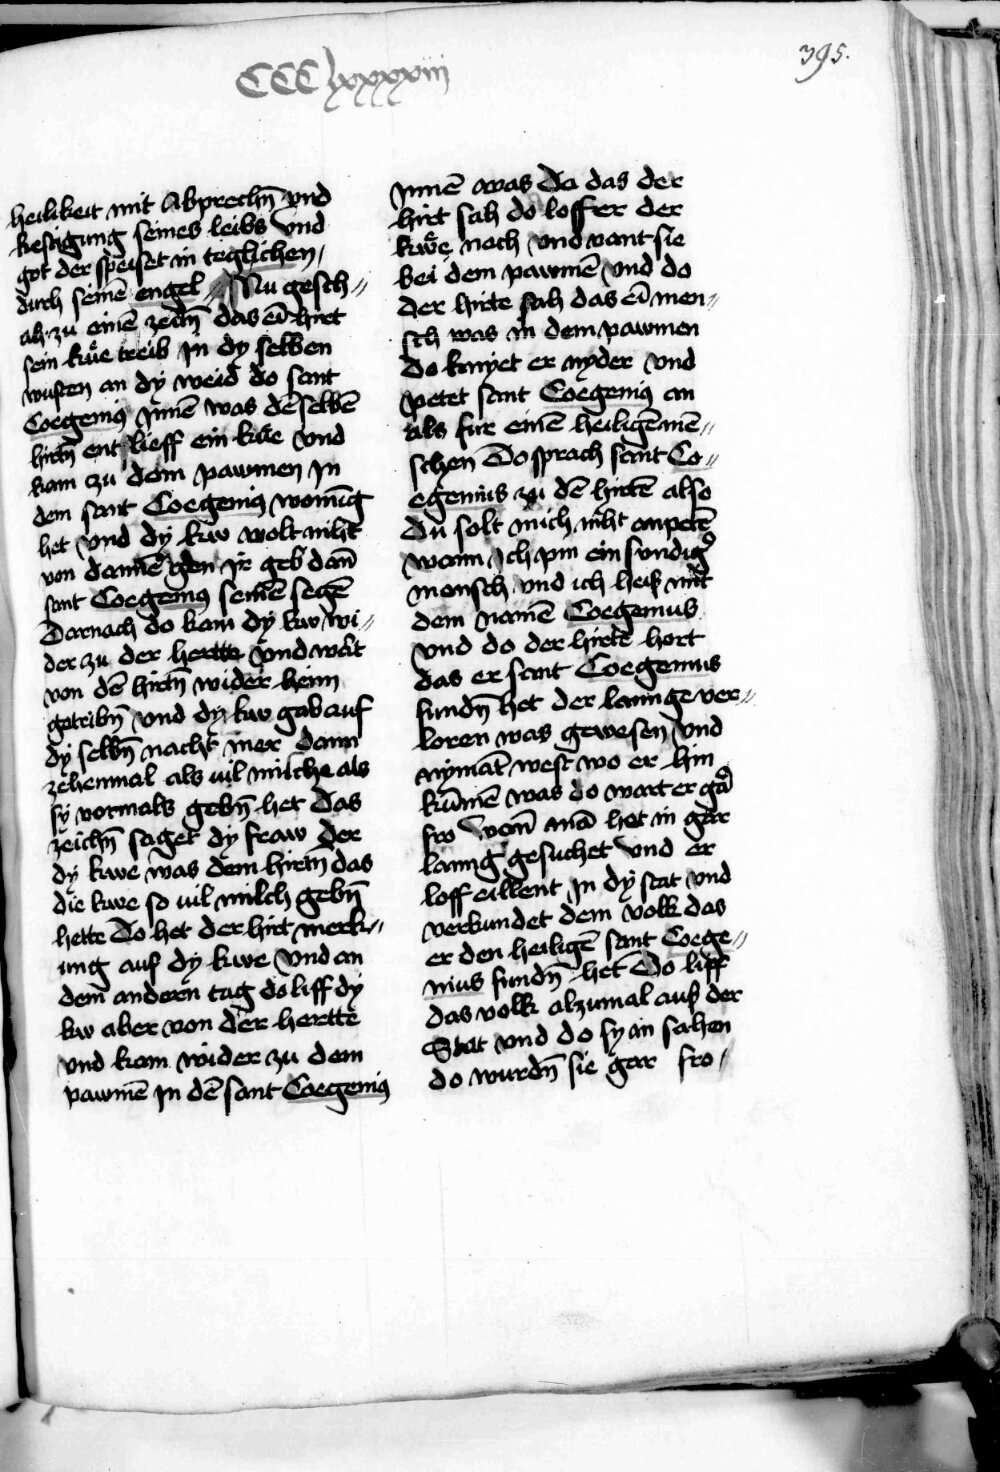 CCClxxxxiii
395.
heilikeit mit Abprechn̄ vnd
kestigung seines leibs vnd
got der speiset in teglichen /
durch seinē engel // Nu gesch //
ah zu einē zeitn̄ das eī hirt
sein kuͤe treib Jn dy selben
wusten an dy weid do sant
Coegenius Jnnē was dē selbē
hirtn̄ ent lieff ein kue vnd
kam zu dem pawmen Jn
dem sant Coegenius wonūg
het vnd dy kw wolt niht
von dannē gen Jr geb dañ
sant Coegenius seinē segē
Darnach do kam dy kw wi //
der zu der hertte vnd wart
von dē hirtn̄ wider heim
getribn̄ vnd dy kw gab auf
dy selbn̄ nacht mer dann
zehenmal als uil milche als
sy vormals gebn̄ het Das
zeichn̄ saget dy fraw der
dy kwe was dem hirtn̄ das
die kwe so uil milch gebn̄
hette Do het der hirt merk //
ung auf dy kwe vnd an
dem andern tag do liff dy
kw aber von der hertte
vnd kam wider zu dem
pawmē Jn dē sant Coegenius
Jnnē was Da das der
hirt sah do loff er der
kwe nach vnd vant sie
bei dem pawmē vnd do
der hirte sah das eī men //
sch was in dem pawmen
do knyet er nyder vnd
petet sant Coegenius an
als fur einē heiligē mē //
schen Do sprach sant Co //
egenius zu dē hirtē also
Du solt mich niht anpetē
wann Jch pin ein sundig̉
mensch vnd ich heiß mit
dem namē Coegenius
vnd do der hirte hort
das er sant Coegenius
fundn̄ het der lannge ver //
loren was gewesen vnd
nymāt west wo er hin
kūmē was do wart er gar
fro wan̄ mā het in gar
lanng gesuchet vnd er
loff eillent Jn dy stat vnd
verkundet dem volk das
er den heiligē sant Coege //
nius fundn̄ het Do liff
das volk alzumal auß der
Stat vnd do sy in sahen
do wurdn̄ sie gar fro /